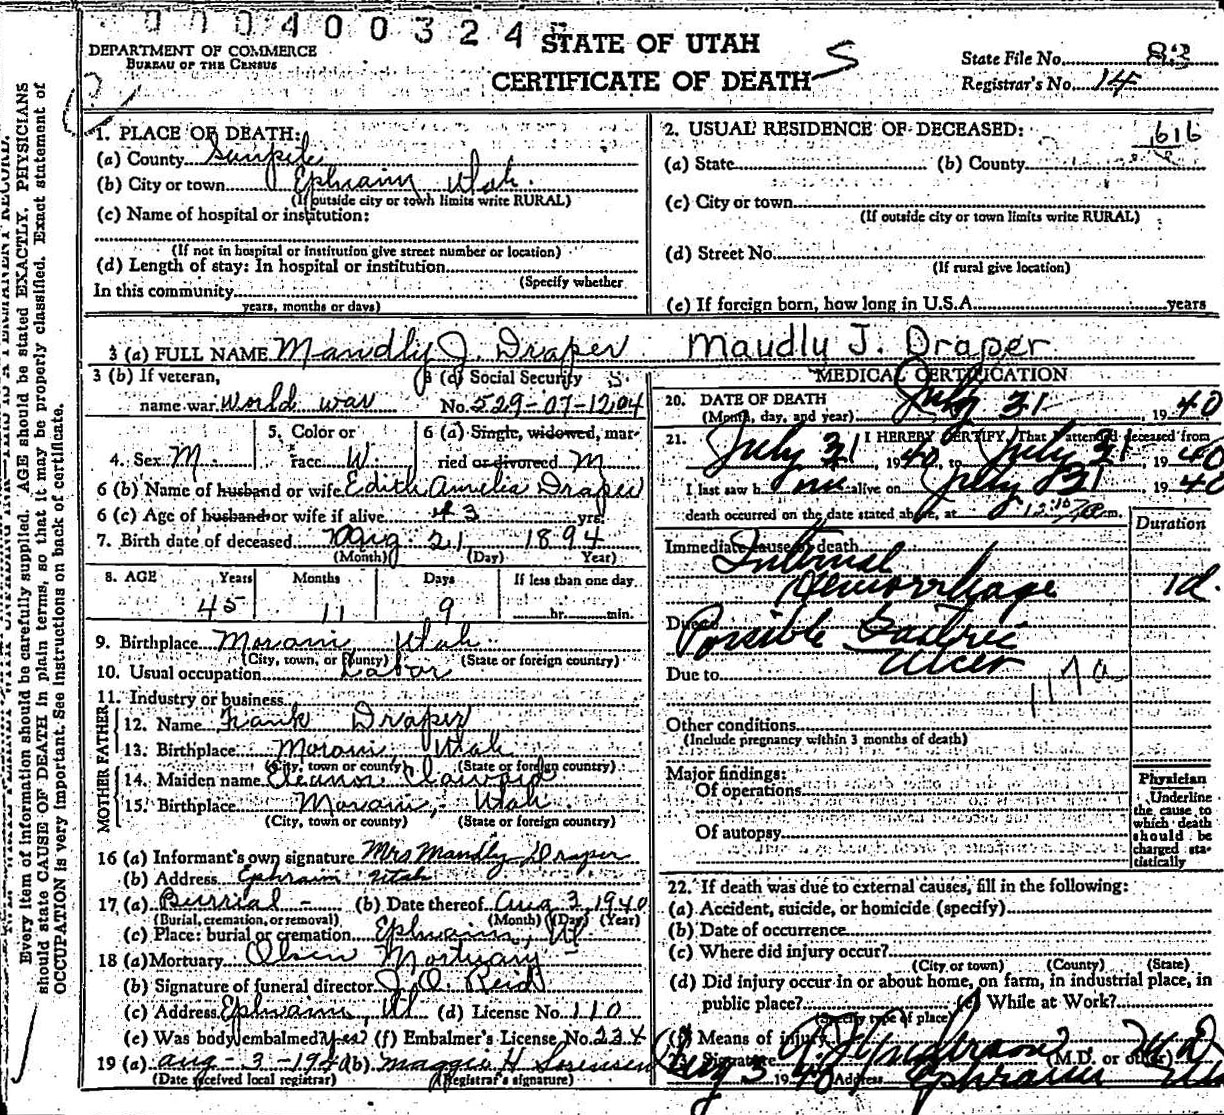 0000400324
STATE OF UTAH
CERTIFICATE OF DEATH S
DEPARTMENT OF COMMERCE
BUREAU OF THE CENSUS
State File No. 83
Registrar's No. 14
Every item of information should be carefully supplied. AGE should be stated EXACTLY, PHYSICIANS
should state CAUSE OF DEATH in plain terms, so that it may be properly classified. Exact statement of
OCCUPATION is very important. See instructions on back of certificate.
1. PLACE OF DEATH:
(a) County Sanpete
(b) City or town Ephraim Utah.
(If outside city or town limits write RURAL)
(c) Name of hospital or institution:
(If not in hospital or institution give street number or location)
(d) Length of stay: In hospital or institution
(Specify whether
In this community
years, months or days)
2. USUAL RESIDENCE OF DECEASED: 616
(a) State (b) County
(c) City or town
(If outside city or town limits write RURAL)
(d) Street No.
(If rural give location)
(e) If foreign born, how long in U.S.A. years
3 (a) FULL NAME Mandly J. Draper Maudly J. Draper
3 (b) If veteran,
name war World war
3 (c) Social Security S.
No. 529-07-1204
4. Sex M
5. Color or
race W
6 (a) Single, widowed, mar-
ried or divorced M
6 (b) Name of husband or wife Edith Amelia Draper
6 (c) Age of husband or wife if alive 43 yrs.
7. Birth date of deceased Aug. 21 1894
(Month) (Day) Year)
8. AGE Years Months Days If less than one day
45 11 9 hr. min.
9. Birthplace Moroni Utah
(City, town, or county) (State or foreign country)
10. Usual occupation Labor
11. Industry or business
FATHER
12. Name Frank Draper
13. Birthplace Moroni Utah
(City, town or county) (State or foreign country)
MOTHER
14. Maiden name Eleanor
15. Birthplace Moroni, Utah
(City, town or county) (State or foreign country)
16 (a) Informant's own signature Mrs Mandly Draper
(b) Address Ephraim Utah
17 (a) Burrial (b) Date thereof Aug 3 1940
(Burial, cremation, or removal) (Month) (Day) (Year)
(c) Place: burial or cremation Ephraim, Ut
18 (a) Mortuary Olsen Mortuary
(b) Signature of funeral director J. O. Reid
(c) Address Ephraim, Ut (d) License No. 110
(e) Was body embalmed? yes (f) Embalmer's License No. 234
19 (a) aug-3-1940 (b) Maggie H Sorensen
(Date received local registrar) (Registrar's signature)
MEDICAL CERTIFICATION
20. DATE OF DEATH July 31, 1940
(Month, day, and year)
21. I HEREBY CERTIFY, That I attended deceased from
July 31, 1940, to July 31, 1940
I last saw him alive on July 31 1940
death occurred on the date stated above, at m.
Duration
Immediate cause of death
Internal
Hemorrhage 1d.
Due to
Possible Gastric
Ulcer
Due to 117a
Other conditions
(Include pregnancy within 3 months of death)
Major findings:
Of operations
Of autopsy
Physician
Underline
the cause to
which death
should be
charged sta-
tistically
22. If death was due to external causes, fill in the following:
(a) Accident, suicide, or homicide (specify)
(b) Date of occurrence
(c) Where did injury occur?
(City or town) (County) (State)
(d) Did injury occur in or about home, on farm, in industrial place, in
public place? (e) While at Work?
(Specify type of place)
(f) Means of injury
23. Signature (M.D. or other) MD
Aug 3 1940 Address Ephraim